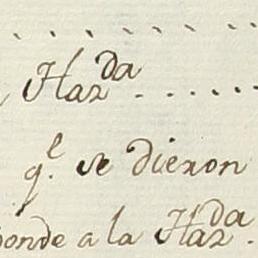 Haz.da
q.e se dieron
ponde a la Haz.da